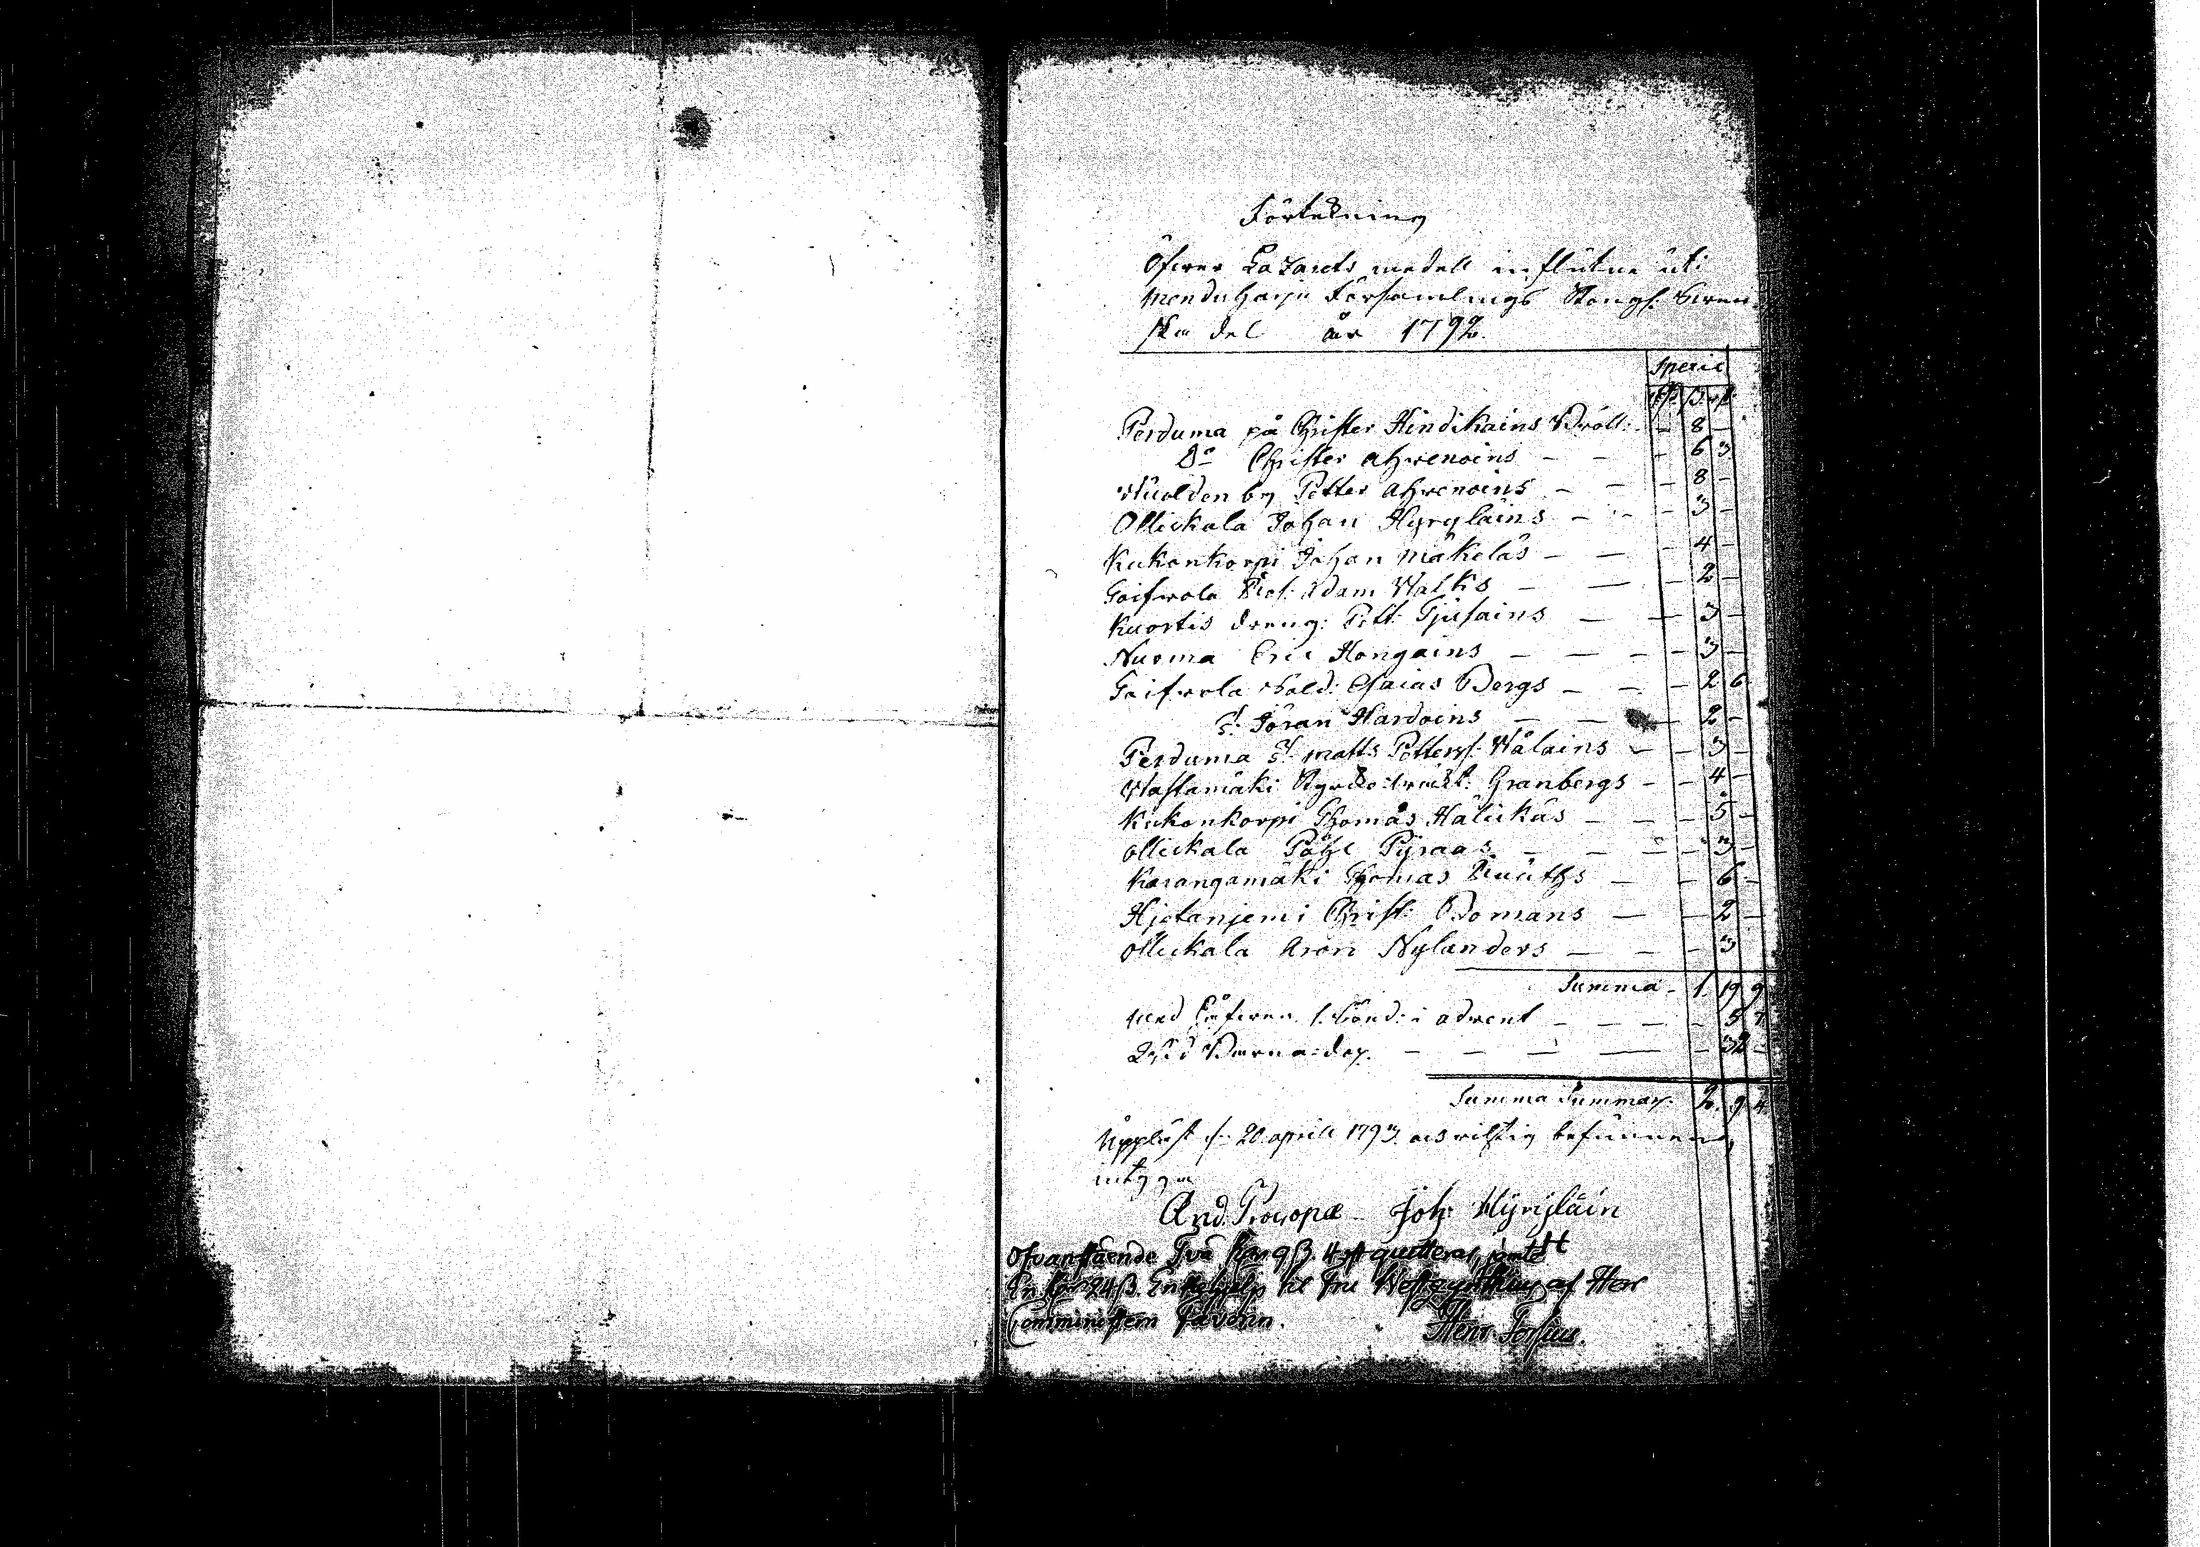 Förtekning
Öfwer Lazarets medell influtne uti
Menduharju Församlings Kongl. Swen-
ska del år 1792.
Specie
Perduma på Christer Hindikains Bröll: — 8 —
Do Christer Ahwenoins — — — 6 3
by Petter Ahwenoins — — — 8 —
Ollickala Johan Hyrylains — — — 3 —
Kukonkorpi Johan Mäkeläs — — — 4 —
Toifwola Adam Halks — — — 2 —
Kuortis dräng: Pett: — — 3 —
Nuoma Eric Hongains — — — — 3 —
Toifwola Sold: Esaias Bergs — — — 2 6
Sd. Jöran Hardoins — — — 2 —
Perduma Sd. Matts Petterss: Wålains — — 3 —
Wastamäki Granbergs — — 4 —
Kukonkorpi Thomas Häkkäs — — — 5 —
Ollickala Påhl Pyraas — — — — 3 —
Karangamäki Thomas Knuuths — — 6 —
Hjetanjemi Christ: Bomans — — 2 —
Ollickala Aron Nylanders — — — 3
Summa — 1. 19 9
med Håfwen 1. Sönd: i Advent — — — — 5 7
Barna-dop. — — — — — 32 —
Summa Summar. 2. 9 4.
Upplüst d. 20 April 1793. och richtig befunnen,
intyga
And. Procopæ Joh. Hyryläin
Ofvanstående Två Rdr 9 ß. 4 rst quitteras jämte
En Rdr 24 ß. til fru af Herr
Comministern Favorin.
Henr.